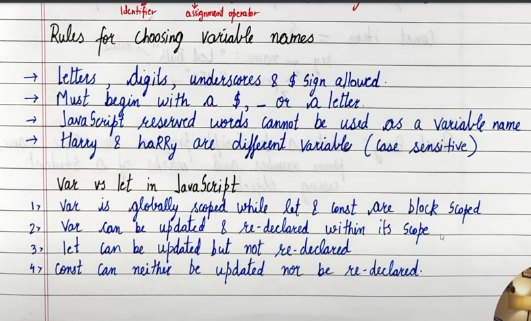 Identifier assignment operator
Rules for choosing variable names
→ Letters, digits, underscores & $ sign allowed.
→ Must begin with a $, _ or a letter.
→ JavaScript reserved words cannot be used as a variable name
→ Harry & haRRy are different variable (case sensitive)
Var vs let in JavaScript
1> Var is globally scoped while let & const are block scoped
2> Var can be updated & re-declared within its scope
3> let can be updated but not re-declared
4> const can neither be updated nor be re-declared.